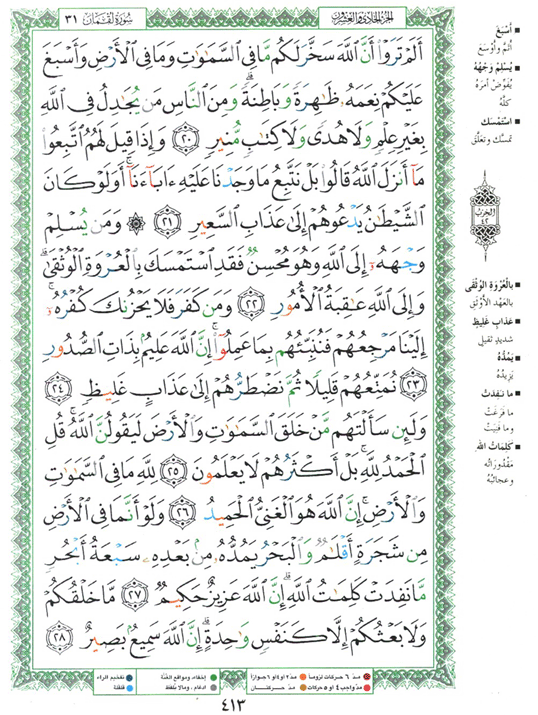 الجزء الحادي والعشرون
سورة لقمان ٣١
أَلَمْ تَرَوْا۟ أَنَّ ٱللَّهَ سَخَّرَ لَكُم مَّا فِى ٱلسَّمَـٰوَٰتِ وَمَا فِى ٱلْأَرْضِ وَأَسْبَغَ
عَلَيْكُمْ نِعَمَهُۥ ظَـٰهِرَةً وَبَاطِنَةً ۗ وَمِنَ ٱلنَّاسِ مَن يُجَـٰدِلُ فِى ٱللَّهِ
بِغَيْرِ عِلْمٍ وَلَا هُدًى وَلَا كِتَـٰبٍ مُّنِيرٍ ﴿٢٠﴾ وَإِذَا قِيلَ لَهُمُ ٱتَّبِعُوا۟
مَآ أَنزَلَ ٱللَّهُ قَالُوا۟ بَلْ نَتَّبِعُ مَا وَجَدْنَا عَلَيْهِ ءَابَآءَنَآ ۚ أَوَلَوْ كَانَ
ٱلشَّيْطَـٰنُ يَدْعُوهُمْ إِلَىٰ عَذَابِ ٱلسَّعِيرِ ﴿٢١﴾ ۞ وَمَن يُسْلِمْ
وَجْهَهُۥٓ إِلَى ٱللَّهِ وَهُوَ مُحْسِنٌ فَقَدِ ٱسْتَمْسَكَ بِٱلْعُرْوَةِ ٱلْوُثْقَىٰ ۗ
وَإِلَى ٱللَّهِ عَـٰقِبَةُ ٱلْأُمُورِ ﴿٢٢﴾ وَمَن كَفَرَ فَلَا يَحْزُنكَ كُفْرُهُۥٓ ۚ
إِلَيْنَا مَرْجِعُهُمْ فَنُنَبِّئُهُم بِمَا عَمِلُوٓا۟ ۚ إِنَّ ٱللَّهَ عَلِيمٌۢ بِذَاتِ ٱلصُّدُورِ
﴿٢٣﴾ نُمَتِّعُهُمْ قَلِيلًا ثُمَّ نَضْطَرُّهُمْ إِلَىٰ عَذَابٍ غَلِيظٍ ﴿٢٤﴾
وَلَئِن سَأَلْتَهُم مَّنْ خَلَقَ ٱلسَّمَـٰوَٰتِ وَٱلْأَرْضَ لَيَقُولُنَّ ٱللَّهُ ۚ قُلِ
ٱلْحَمْدُ لِلَّهِ ۚ بَلْ أَكْثَرُهُمْ لَا يَعْلَمُونَ ﴿٢٥﴾ لِلَّهِ مَا فِى ٱلسَّمَـٰوَٰتِ
وَٱلْأَرْضِ ۚ إِنَّ ٱللَّهَ هُوَ ٱلْغَنِىُّ ٱلْحَمِيدُ ﴿٢٦﴾ وَلَوْ أَنَّمَا فِى ٱلْأَرْضِ
مِن شَجَرَةٍ أَقْلَـٰمٌ وَٱلْبَحْرُ يَمُدُّهُۥ مِنۢ بَعْدِهِۦ سَبْعَةُ أَبْحُرٍ
مَّا نَفِدَتْ كَلِمَـٰتُ ٱللَّهِ ۗ إِنَّ ٱللَّهَ عَزِيزٌ حَكِيمٌ ﴿٢٧﴾ مَّا خَلْقُكُمْ
وَلَا بَعْثُكُمْ إِلَّا كَنَفْسٍ وَٰحِدَةٍ ۗ إِنَّ ٱللَّهَ سَمِيعٌۢ بَصِيرٌ ﴿٢٨﴾
أَسْبَغَ
أتمَّ وأوسع
يُسْلِمْ وَجْهَهُ
يُفوِّض أمره
كلّه
استمسك
تمسّك وتعلّق
الحزب
٤٢
بالعُروةِ الوُثقى
بالعهد الأوثق
عذاب غليظ
شديد ثقيل
يَمُدُّه
يزيدُه
ما نفدت
ما فرغت
وما فنيت
كلماتُ الله
مقدوراته
وعجائبه
مدّ ٦ حركات لزوماً
مدّ ٢ أو ٤ أو ٦ جوازاً
إخفاء، ومواقع الغنّة
تفخيم الراء
مدّ واجب ٤ أو ٥ حركات
مدّ حركتان
ادغام، وما لا يُلفظ
قلقلة
٤١٣